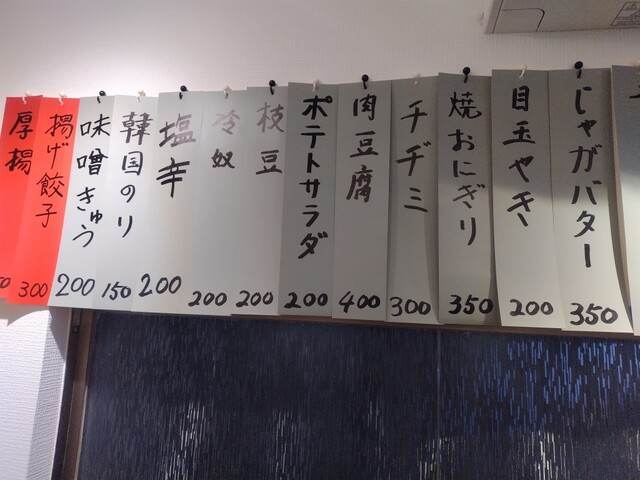 じゃがバター
350
目玉やき
200
焼おにぎり
350
チヂミ
300
肉豆腐
400
ポテトサラダ
200
枝豆
200
冷奴
200
塩辛
200
韓国のり
150
味噌きゅう
200
揚げ餃子
300
厚揚